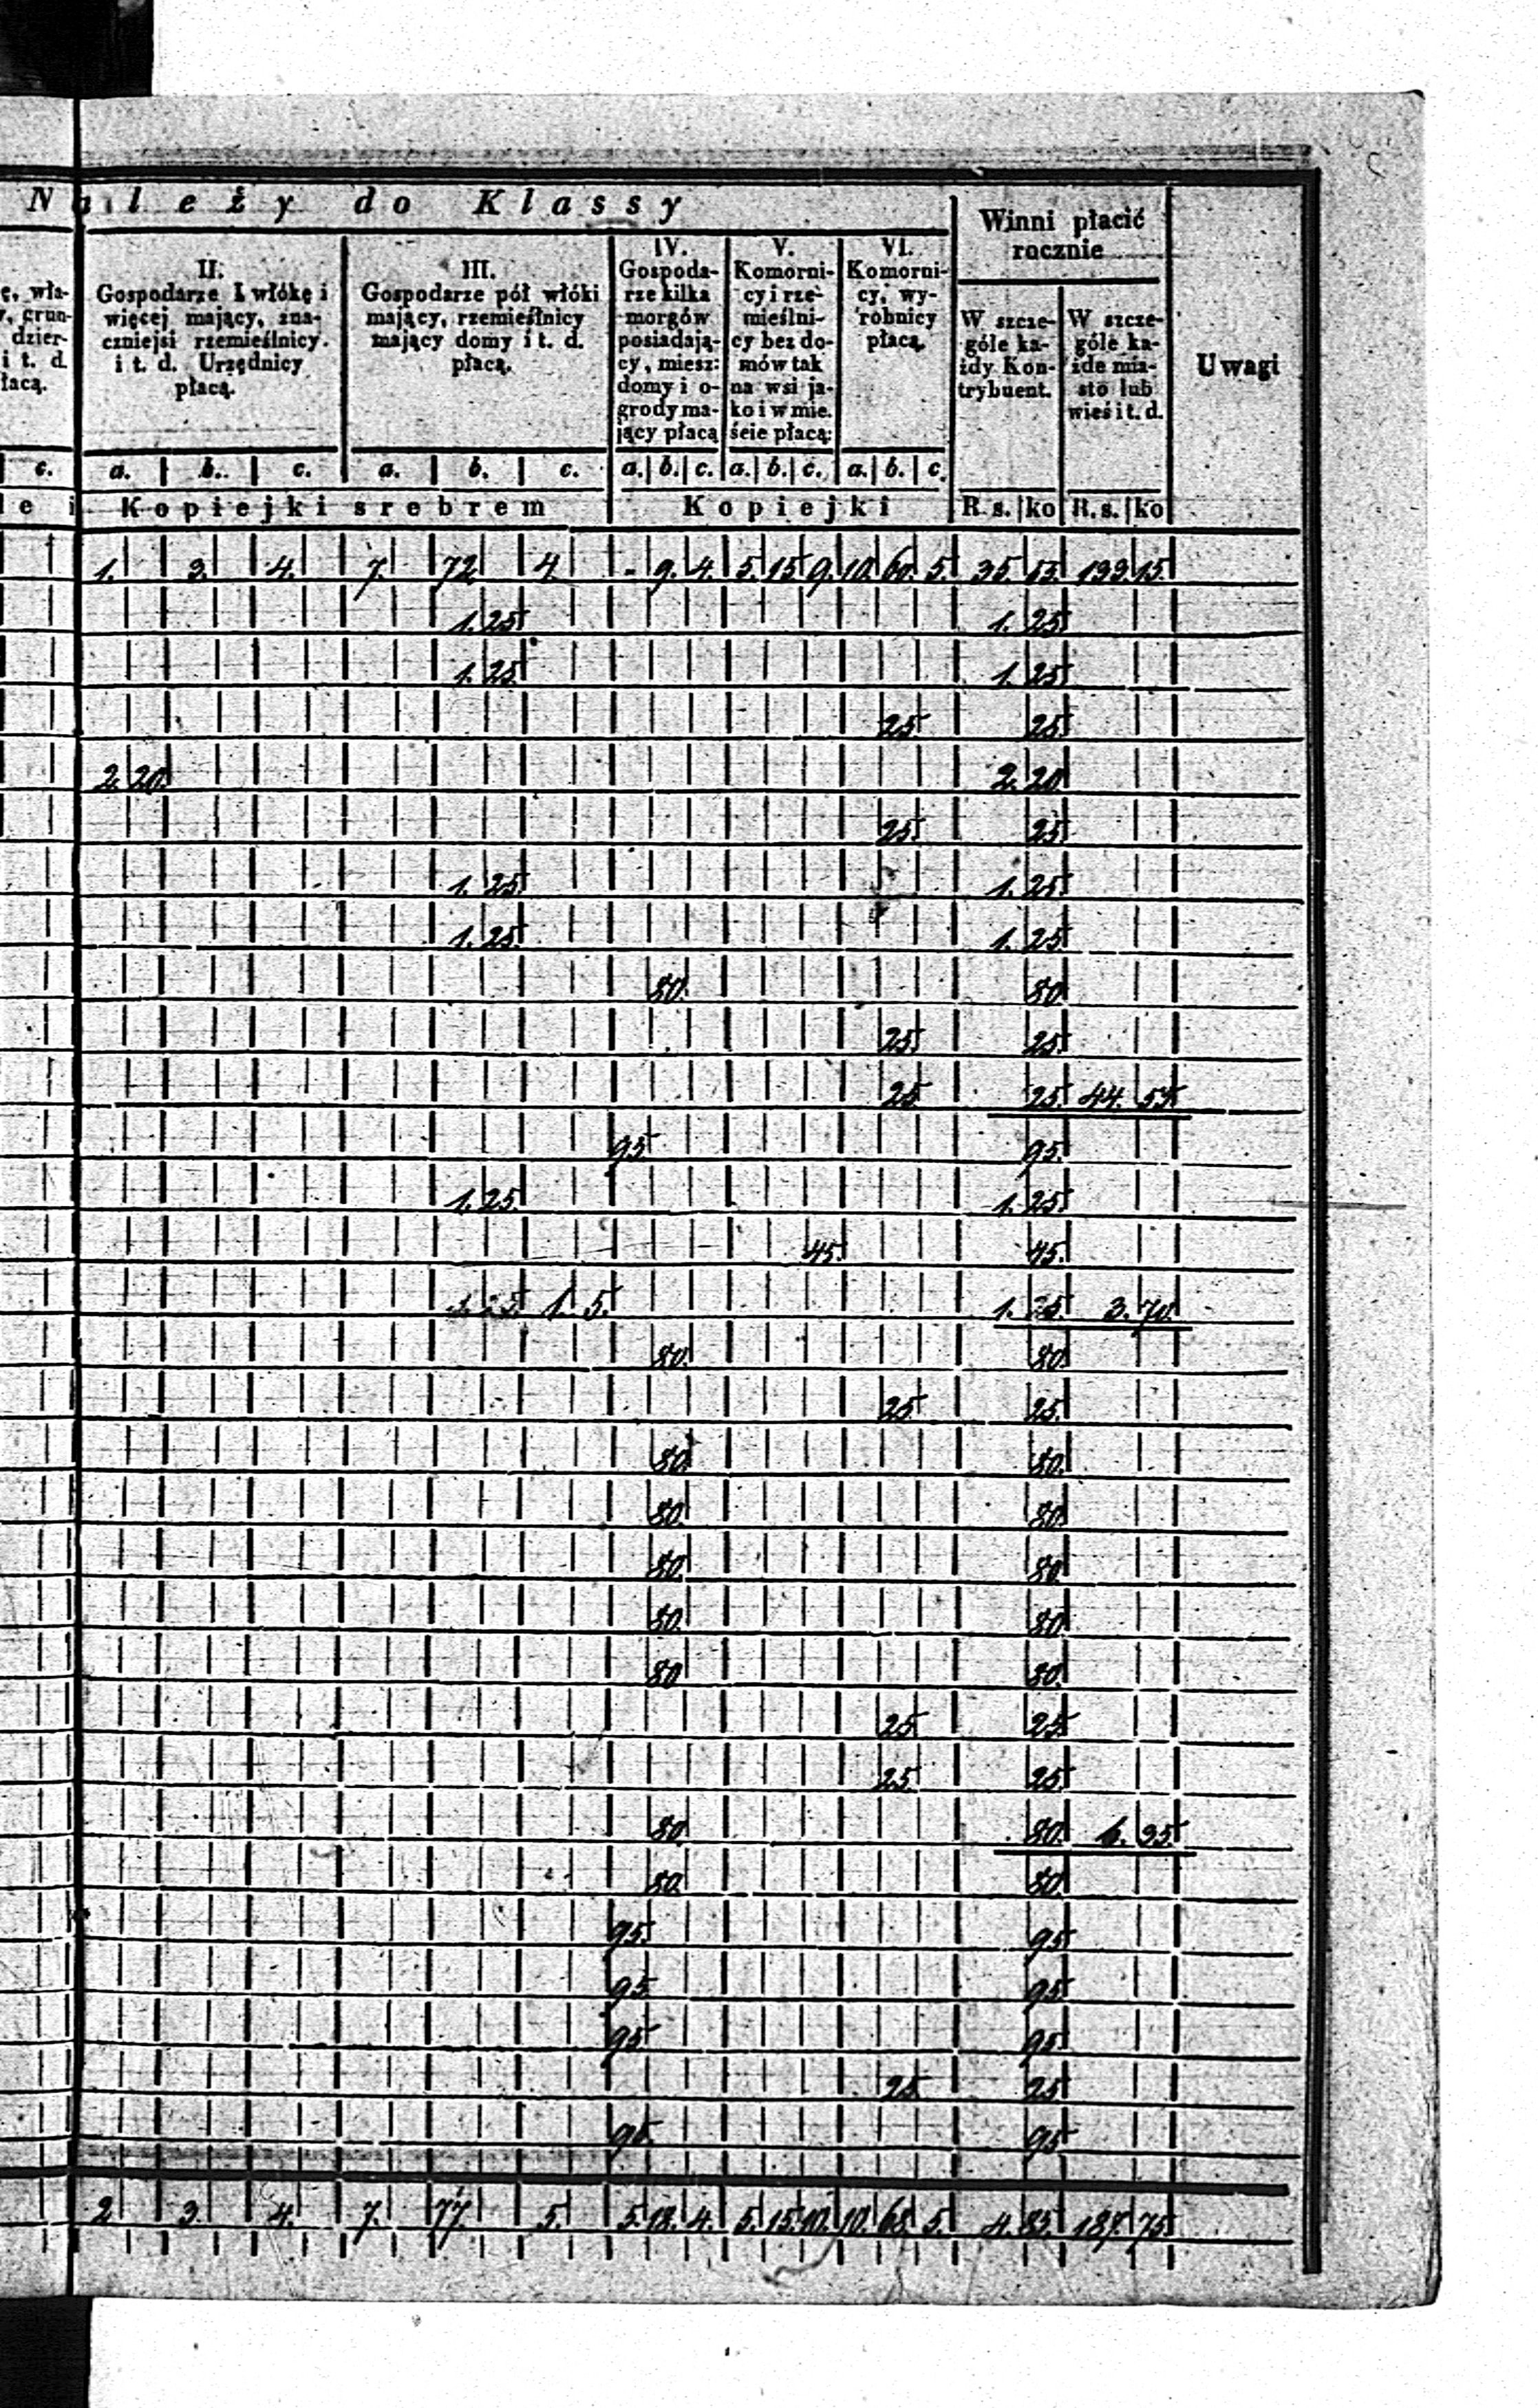 Należy do Klassy
Winni płacić
rocznie
Uwagi
ę, wła-
, grun-
dzier-
i t. d.
łacą.
II.
Gospodarze 1 włókę i
więcej mający, zna-
czniejsi rzemieślnicy.
i t. d. Urzędnicy
płacą.
III.
Gospodarze pół włóki
mający, rzemieślnicy
mający domy i t. d.
płacą.
IV.
Gospoda-
rze kilka
morgów
posiadają-
cy, miesz:
domy i o-
grody ma-
jący płacą
V.
Komorni-
cy i rze-
mieślni-
cy bez do-
mów tak
na wsi ja-
ko i w mie.
ście płacą:
VI.
Komorni-
cy, wy-
robnicy
płacą.
W szcze-
góle ka-
żdy Kon-
trybuent.
W szcze-
góle ka-
żde mia-
sto lub
wieś i t. d.
c. a. b. c. a. b. c. a. b. c. a. b. c. a. b. c.
l e i Kopiejki srebrem Kopiejki R. s. ko R. s. ko
1. 3. 4. 7. 72 4. - 9. 4. 5. 15. 9. 10. 60. 5. 35. 133 15.
1. 25. 1. 25.
1. 25. 1. 25.
25 25
2. 20. 2. 20
25. 25.
1. 25. 1. 25.
1. 25. 1. 25.
80. 80.
25. 25.
25. 25. 44.
95 95.
1. 25. 1. 25.
45. 45.
1. 25. 1. 5. 1. 3. 70.
80. 80.
25. 25.
80. 80.
80. 80.
80. 80.
80. 80.
80 80.
25. 25.
25. 25
80 80. 6. 35.
80. 80.
95. 95
95. 95.
95 95.
25. 25.
95. 95
2 3. 4. 7. 77. 5. 5. 18. 4. 5. 15. 10. 10. 68. 5. 4. 85. 187. 75.